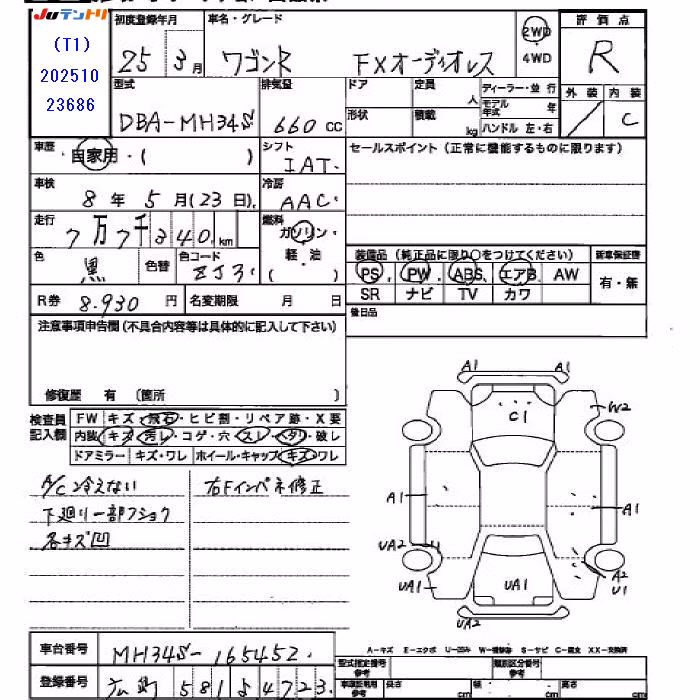 Juテントリ
(T1)
202510
23686
初度登録年月 車名・グレード 評価点
25 3月 ワゴンR FXオーディオレス 2WD・4WD R
型式 排気量 ドア 定員 人 ディーラー・並行 外装 内装
DBA-MH34S 660cc 形状 積載 kg モデル年式 年 ハンドル 左・右 / C
車歴 自家用・( ) シフト IAT. セールスポイント(正常に機能するものに限ります)
車検 8年5月(23日) 冷房 AAC.
走行 7万7千340km 燃料 ガソリン・軽油・( )
色 黒 色替 色コード ZJ3 装備品(純正品に限り○をつけてください) 新車保証書
PS PW ABS エアB AW 有・無
SR ナビ TV カワ
R券 8.930円 名変期限 月 日 後日品
注意事項申告欄(不具合内容等は具体的に記入して下さい)
修復歴 有 (箇所 )
検査員記入欄 FW キズ・飛石・ヒビ割・リペア跡・X要
内装 キズ・汚レ・コゲ・穴・スレ・ヘタリ・破レ
ドアミラー キズ・ワレ ホイール・キャップ キズ・ワレ
A/C冷えない 右Fインパネ修正
下廻り一部フショク
各キズ凹
A1 A1
C1 W2
A1 A1
UA2 A2
UA1 UA1 U1
UA2
A-キズ E-エクボ U-凹み W-補修跡 S-サビ C-腐食 XX-交換済
車台番号 MH34S-165452. 型式指定番号 参考 類別区分番号 参考
登録番号 581 よ 4723 車庫証明用 参考 長さ cm 幅 cm 高さ cm